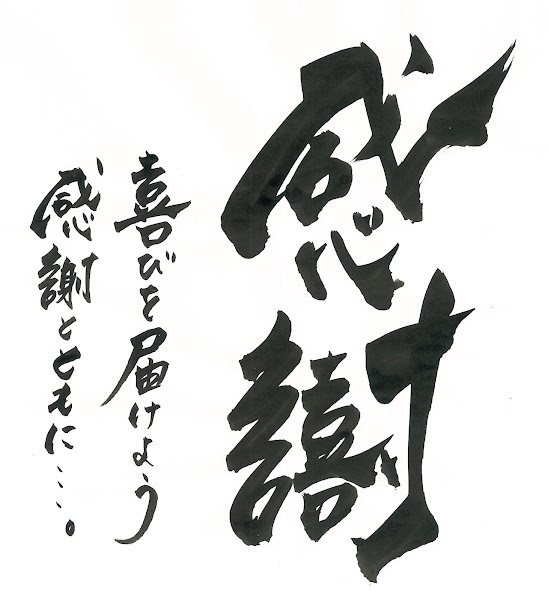 感謝
喜びを届けよう
感謝とともに…。